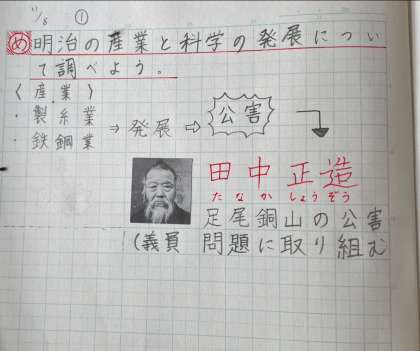 11/8 ①
め 明治の産業と科学の発展につい
て調べよう。
〈産業〉
・製糸業
・鉄鋼業
⇒ 発展 ⇨ 公害
田中正造
たなかしょうぞう
足尾銅山の公害
(義員 問題に取り組む